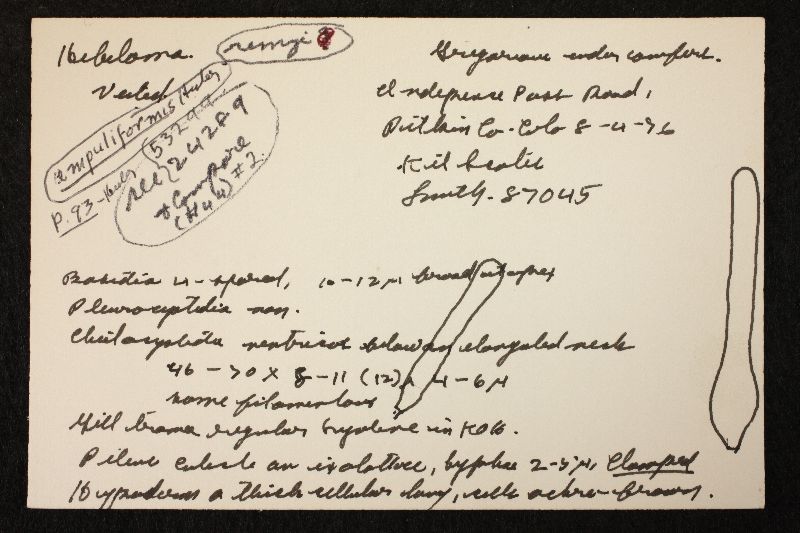 Hebeloma.
remyi ?
Veiled
ampuliformis
P. 93-
see 24289
+ Compare
(Hu4) #2
Gregarious under conifers.
Independence Pass Road,
Pitkin Co-Colo 8-4-76
Kit
Smith. 87045
Basidia 4-spored, 10-12 μ broad at apex
Pleurocystidia non.
Cheilocystidia ventricose below an elongated neck
46-70 x 8-11 (12) x 4-6 μ
some filamentous
Gill trama regular hyaline in KOH.
Pileus cuticle an ixolattice, hyphae 2-5 μ, Clamped
Hypoderm a thick cellular layer, cells ochre-brown.